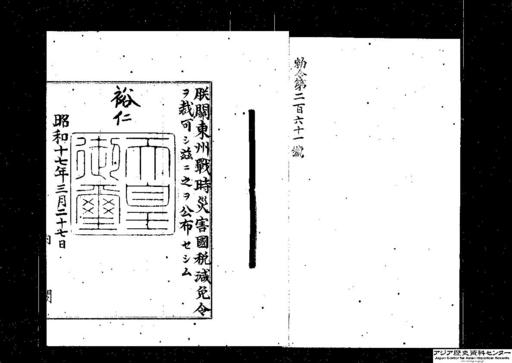 勅令第二百六十一號
朕關東州戰時災害國税減免令
ヲ裁可シ茲ニ之ヲ公布セシム
裕仁
天皇
御璽
昭和十七年三月二十七日
内閣
アジア歴史資料センター
Japan Center for Asian Historical Records